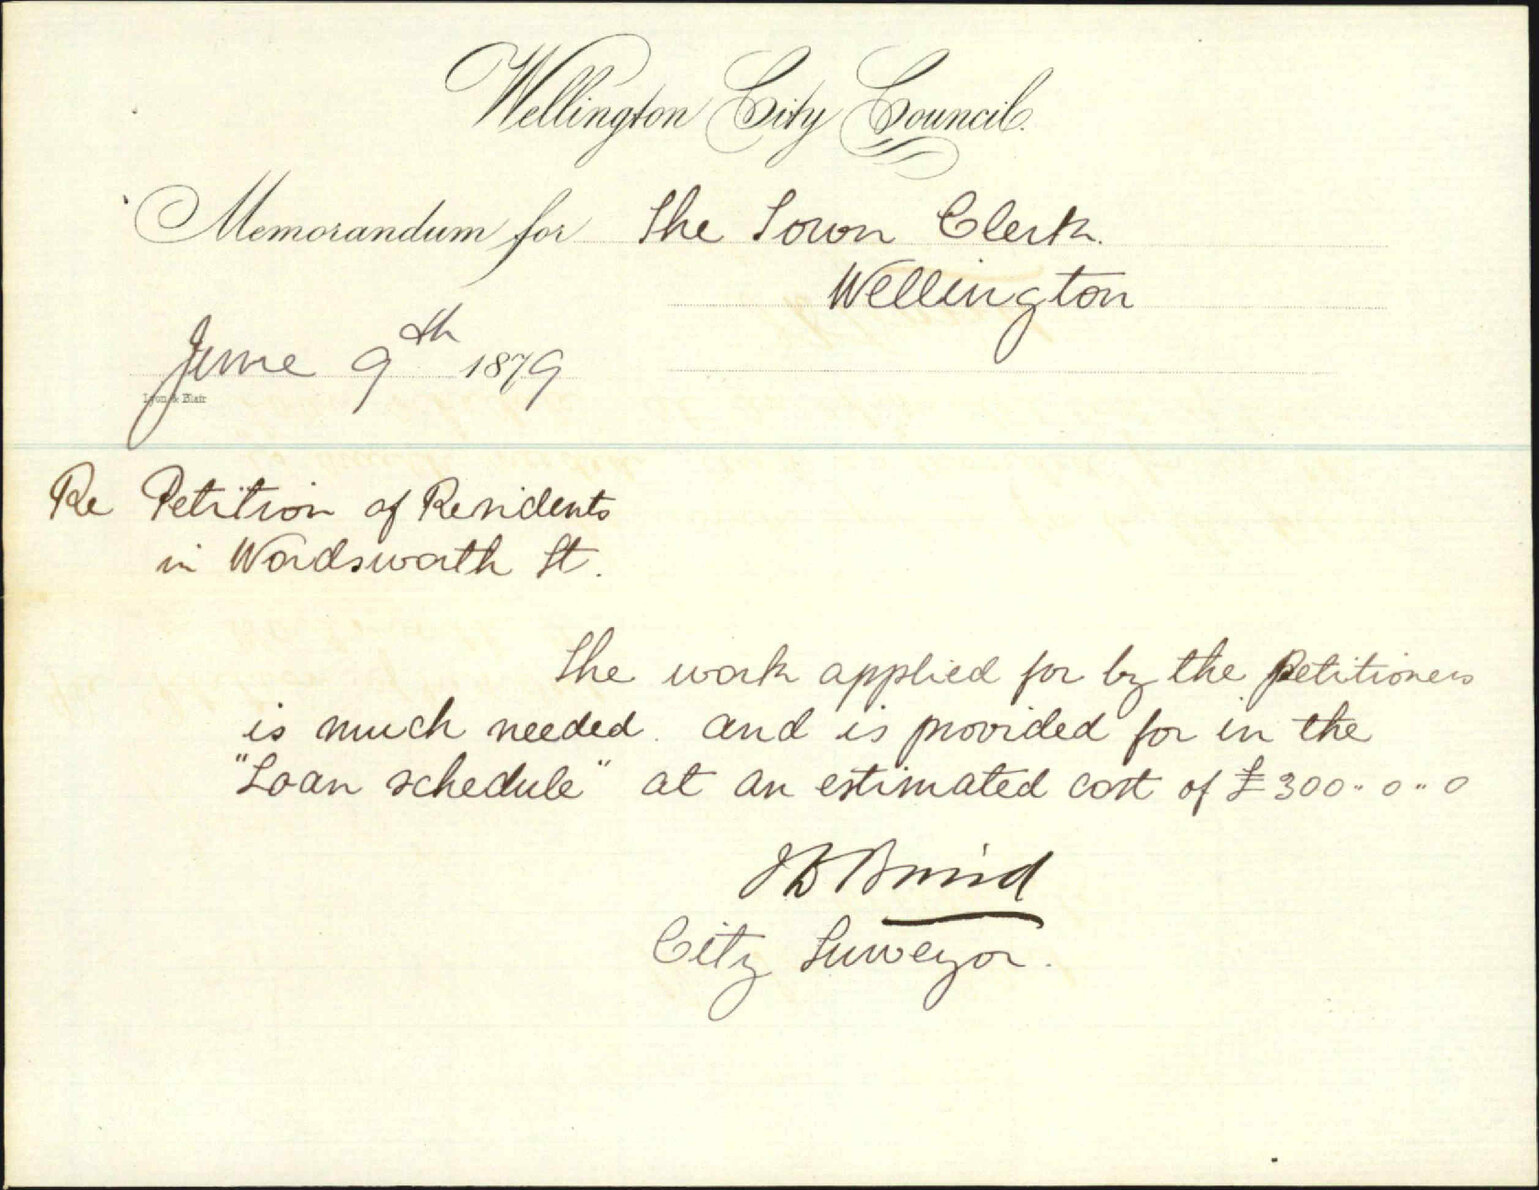 Wellington City Council.
Memorandum for The Town Clerk.
Wellington
June 9th 1879
Lyon & Blair
Re Petition of Residents
in Wordsworth St.
The work applied for by the Petitioners
is much needed. and is provided for in the
"Loan schedule" at an estimated cost of £300" 0 " 0
J D Baird
City Surveyor.